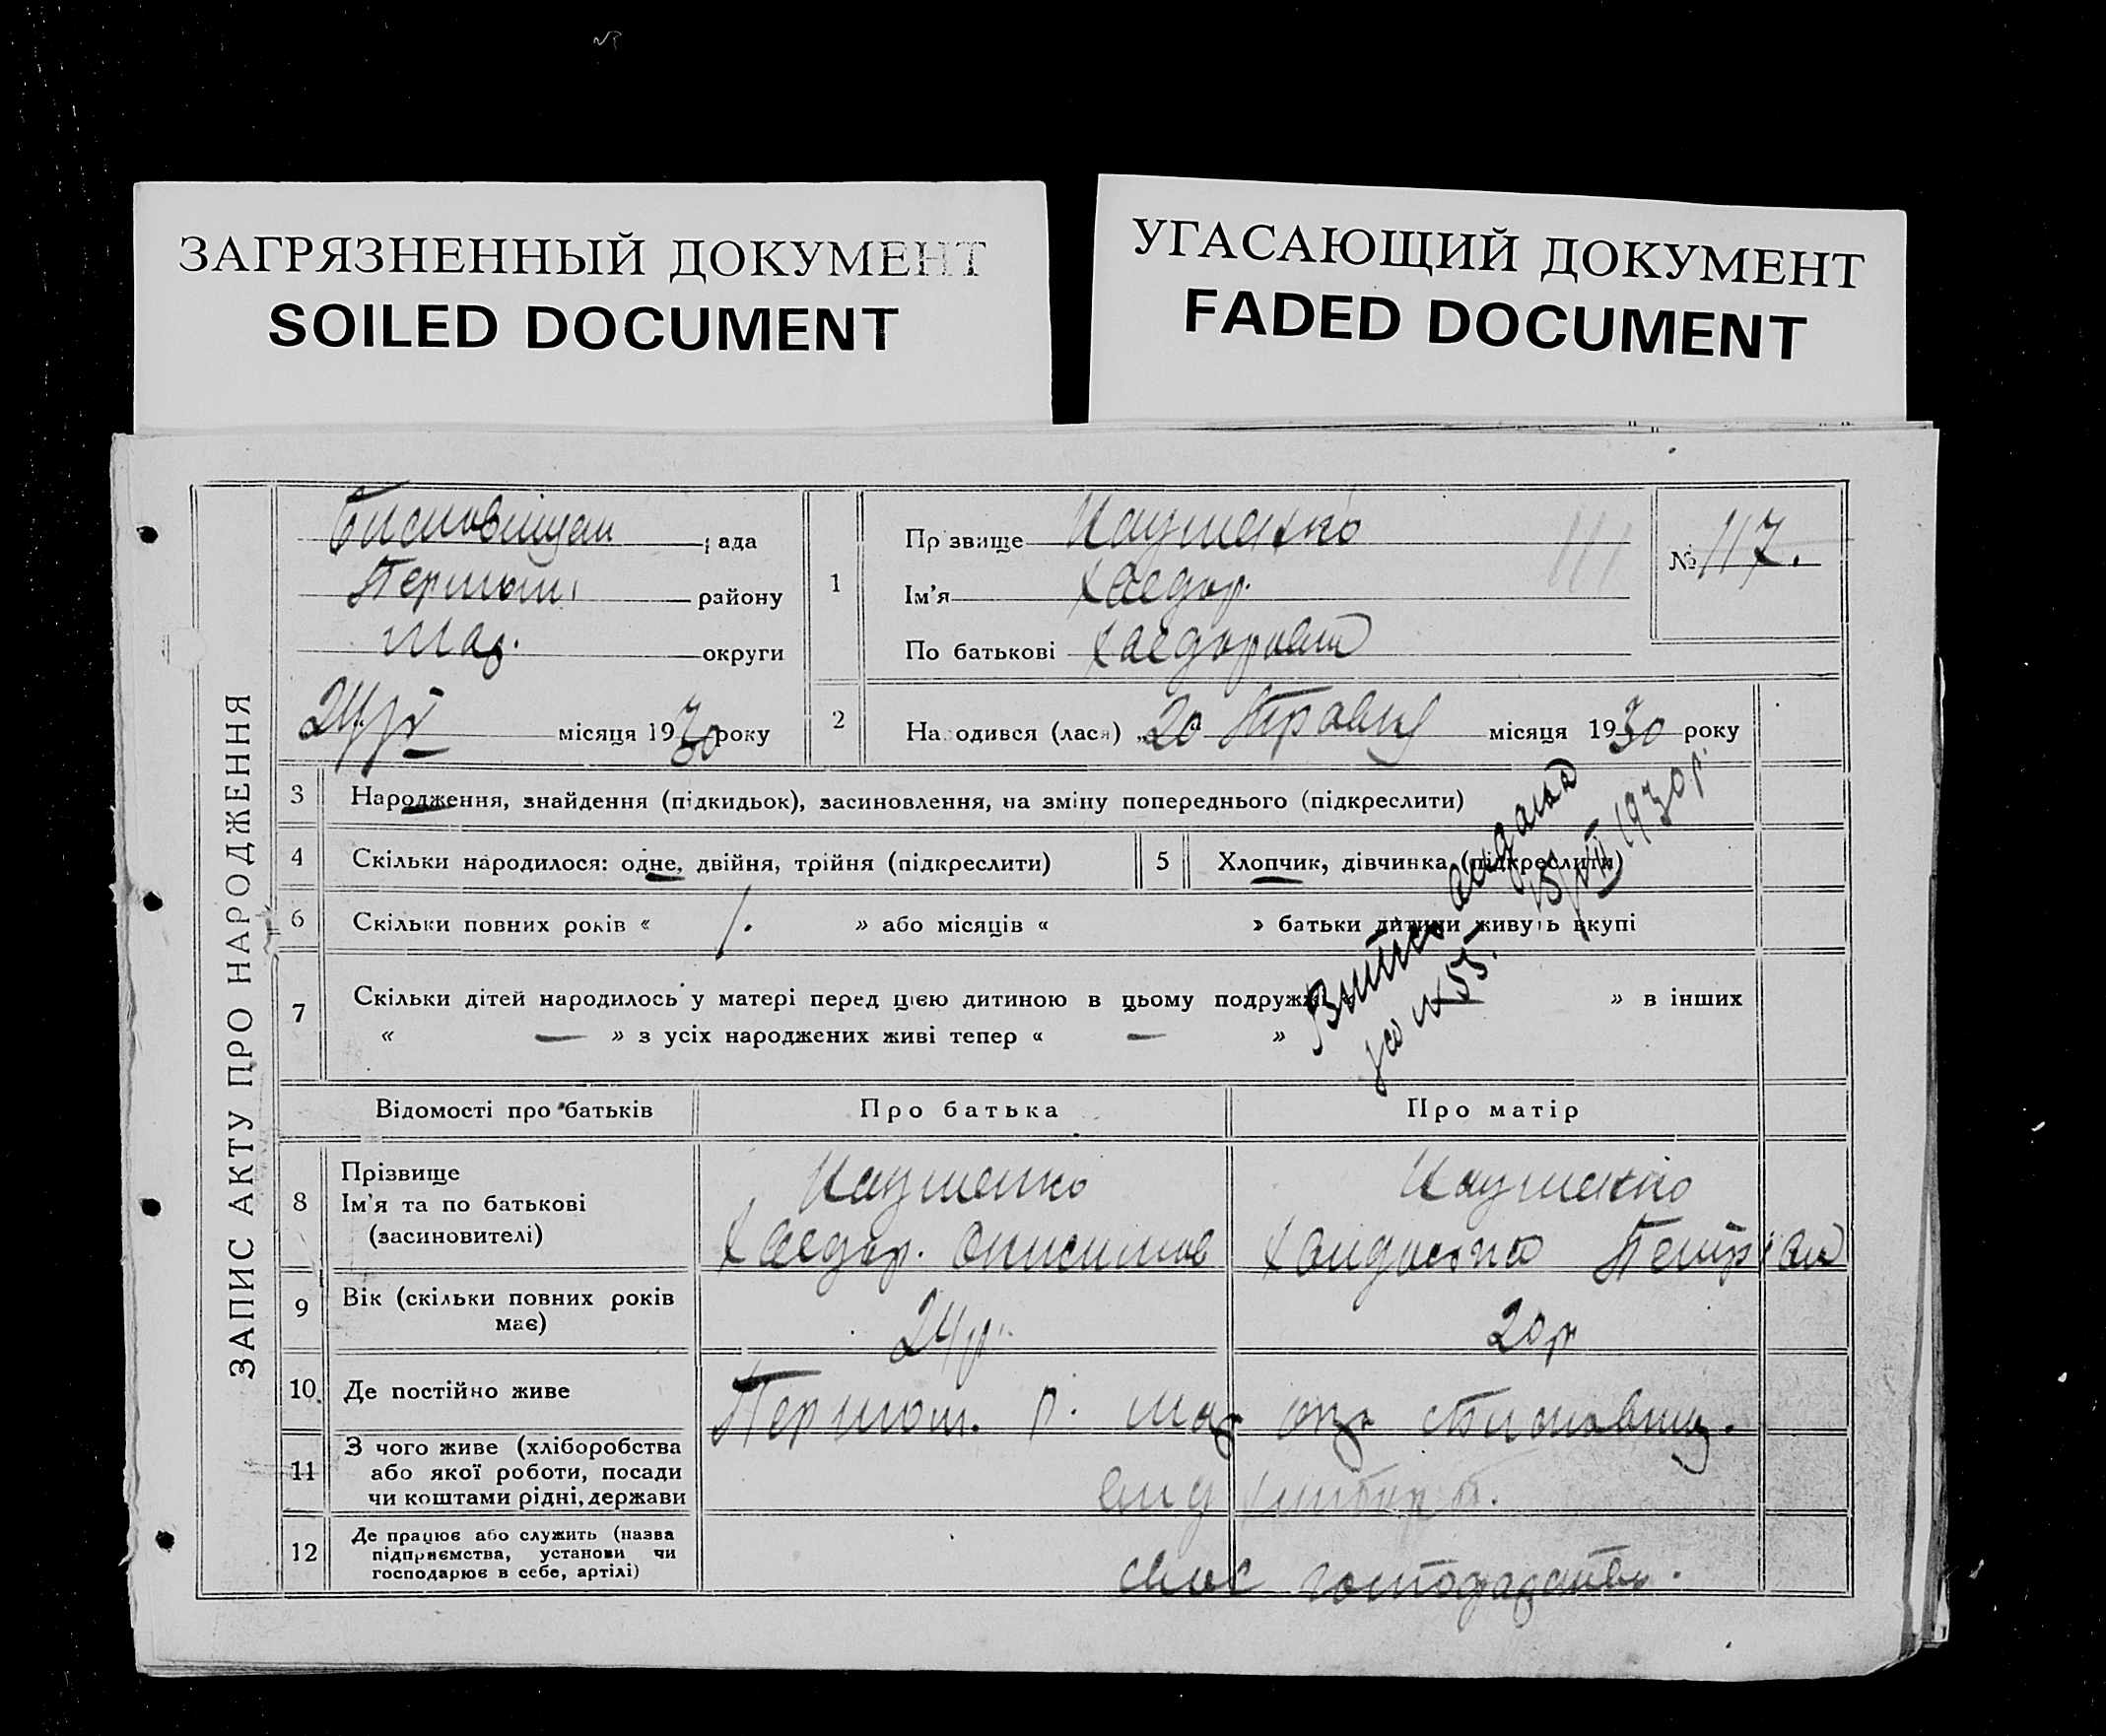 ЗАГРЯЗНЕННЫЙ ДОКУМЕНТ
SOILED DOCUMENT
УГАСАЮЩИЙ ДОКУМЕНТ
FADED DOCUMENT
ЗАПИС АКТУ ПРО НАРОДЖЕННЯ
рада
району
Мар. округи
24/V місяця 1930 року
1
Прізвище Науменко
Ім'я Хведор.
По батькові
№ 117.
2
Народився (лася) „20" Травня місяця 1930 року
3 Народження, знайдення (підкидьок), засиновлення, на зміну попереднього (підкреслити)
4 Скільки народилося: одне, двійня, трійня (підкреслити)
5 Хлопчик, дівчинка (підкреслити)
6 Скільки повних років « 1. » або місяців « » батьки дитини живуть вкупі
7 Скільки дітей народилось у матері перед цією дитиною в цьому подружжі « » в інших
« — » з усіх народжених живі тепер « — »
за № 55. 15/VIII 1930 р.
Відомості про батьків Про батька Про матір
8 Прізвище
Ім'я та по батькові
(засиновителі)
Науменко
Хведор.
Науменко
9 Вік (скільки повних років
має)
24 р.
20 р
10 Де постійно живе
р. Мар окр
11 З чого живе (хліборобства
або якої роботи, посади
чи коштами рідні, держави
12 Де працює або служить (назва
підприємства, установи чи
господарює в себе, артілі)
своє господарство.